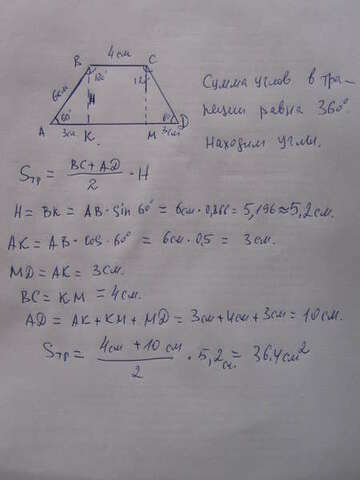 4см
B C
6см 120° 120
A 60° 60° D
3см K. M 3см
Сумма углов в тра-
пеции равна 360°
Находим углы.
Sтр = BC + AD / 2 · H
H = BK = AB · sin 60° = 6см · 0,866 = 5,196 ≈ 5,2 см.
AK = AB · cos · 60° = 6см · 0,5 = 3см.
MD = AK = 3см.
BC = KM = 4см.
AD = AK + KM + MD = 3см + 4см + 3см = 10см.
Sтр = 4см + 10см / 2 · 5,2см = 36.4см²